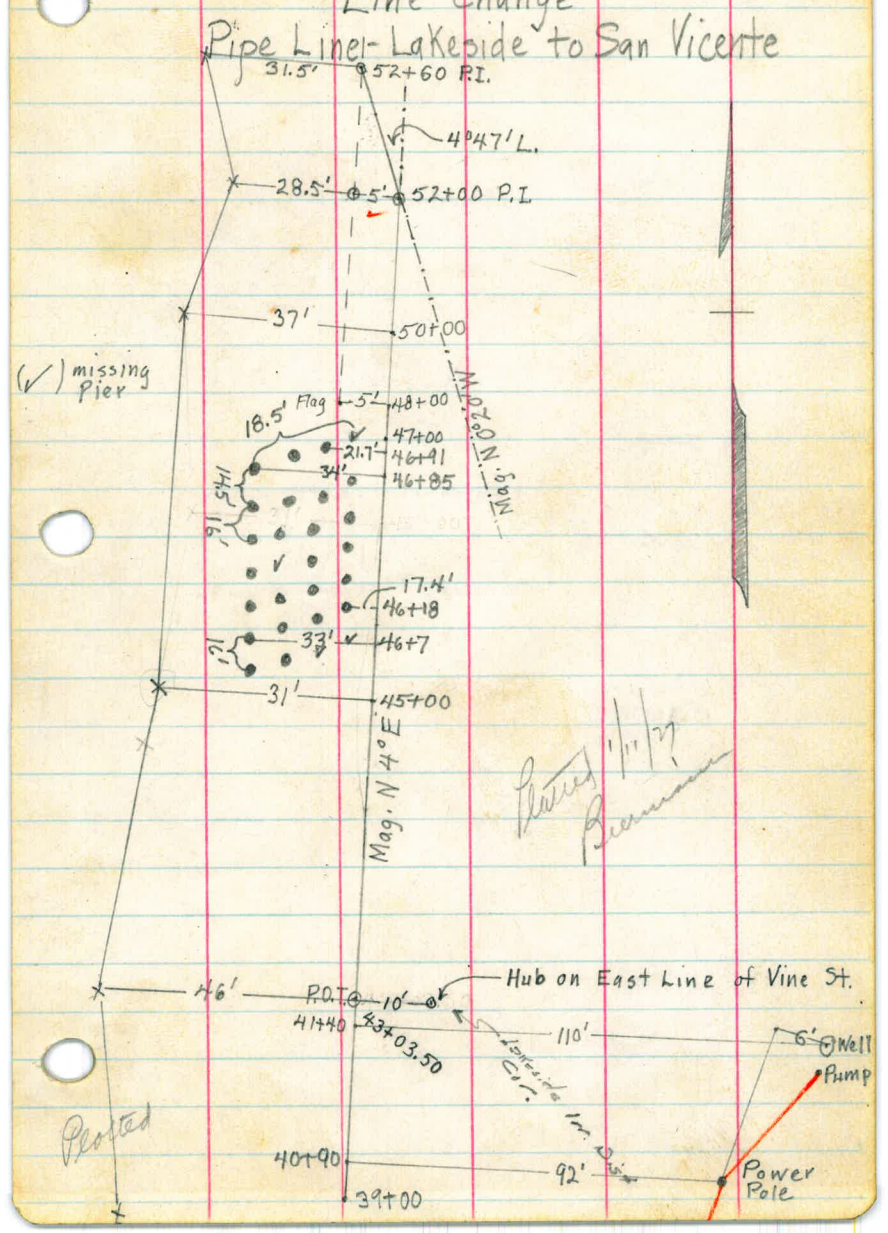 Line Change
Pipe Line - Lakeside to San Vicente
31.5' 52+60 P.I.
4°47' L.
28.5' 5' 52+00 P.I.
37' 50+00
(✓) missing
Pier
Flag 5' 48+00
18.5'
47+00
21.7' 46+91
34' 46+85
14.5'
16'
Mag. N 20° W
17.4'
46+18
33' 46+7
12'
31' 45+00
Mag. N 4° E
Platted 1/11/27
Biermann
Hub on East Line of Vine St.
46' P.O.T. 10'
41+40 43+03.50 110' 6' Well
Pump
Lakeside Irr. Dist
Cor.
Plotted
40+90 92' Power
Pole
39+00